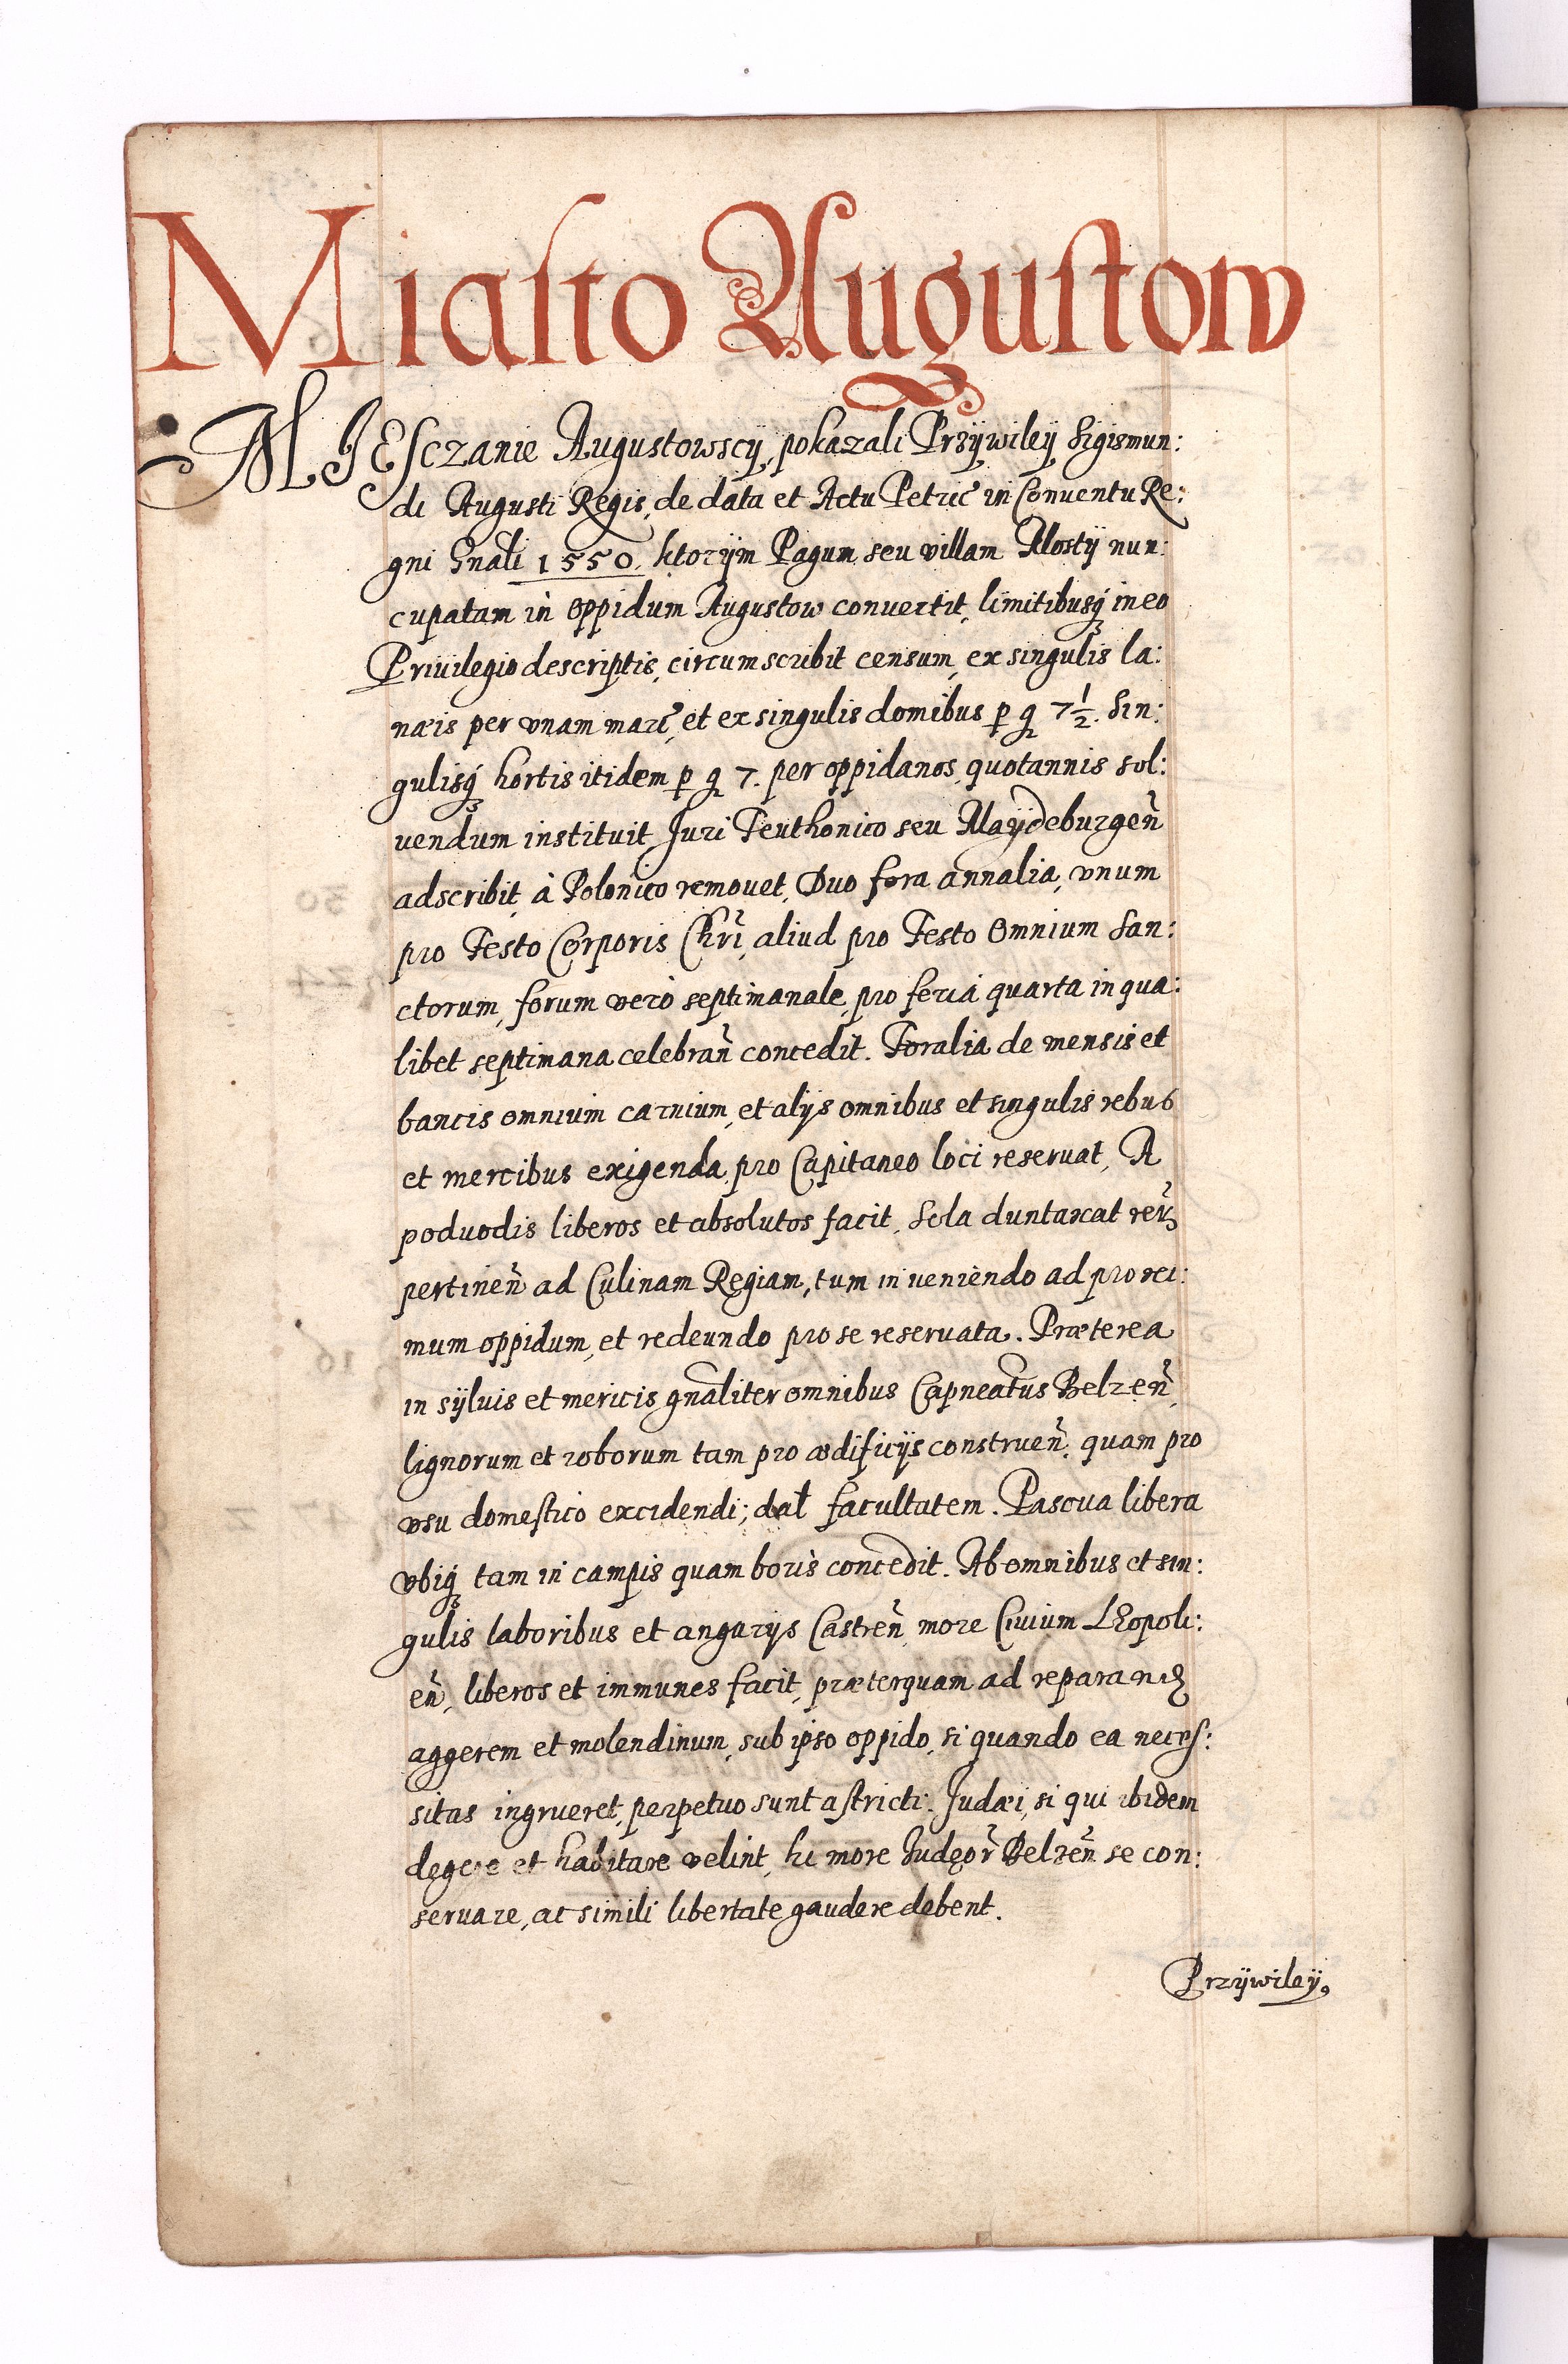 Miasto Augustow
MIESczanie Augustowscÿ, pokazali Przÿwileÿ Sigismun:
di Augusti Regis, de data et Actu Petric̃ in Conventu Re:
gni Gnãli 1550. ktorÿm Pagum seu villam Mostÿ nun:
cupatam in oppidum Augustow convertit, limitibusq́ in eo
Priuilegio descriptis, circumscribit censum, ex singulis la:
næis per vnam marc̃, et ex singulis domibus p gͅ 7½. Sin:
gulisq́ hortis itidem p gͅ 7. per oppidanos quotannis sol:
uendum instituit Juri Teuthonico seu Maÿdeburgeñ
adscribit, à Polonico remouet, Duo fora annalia, vnum
pro Festo Corporis Chri̴, aliud pro Festo Omnium San:
ctorum, forum verò septimanale, pro feria quarta in qua:
libet septimana celebrañ concedit. Foralia de mensis et
bancis omnium carnium, et alÿs omnibus et singulis rebus
et mercibus exigenda, pro Capitaneo loci reseruat, A
poduodis liberos et absolutos facit, Sola duntaxat reꝝ
pertineñ ad Culinam Regiam, tum in veniendo ad proxi:
mum oppidum, et redeundo pro se reseruata. Præterea
in sÿluis et mericis gnãliter omnibus Capneatus Belzeñ,
lignorum et roborum tam pro ædificÿs construeñ, quam pro
vsu domestico excidendi; dat facultatem. Pascua libera
vbiq́ tam in campis quam boris concedit. Ab omnibus et sin:
gulis laboribus et angarÿs Castreñ, more Ciuium Leopoli:
eñ, liberos et immunes facit, præterquam ad reparandͅ
aggerem et molendinum, sub ipso oppido, si quando ea neces:
sitas ingrueret, perpetuo sunt astricti. Judæi, si qui ibidem
degere et habitare velint, hi more Judęor̃ Belzeñ se con:
seruare, ac simili libertate gaudere debent.
Przÿwileÿ,